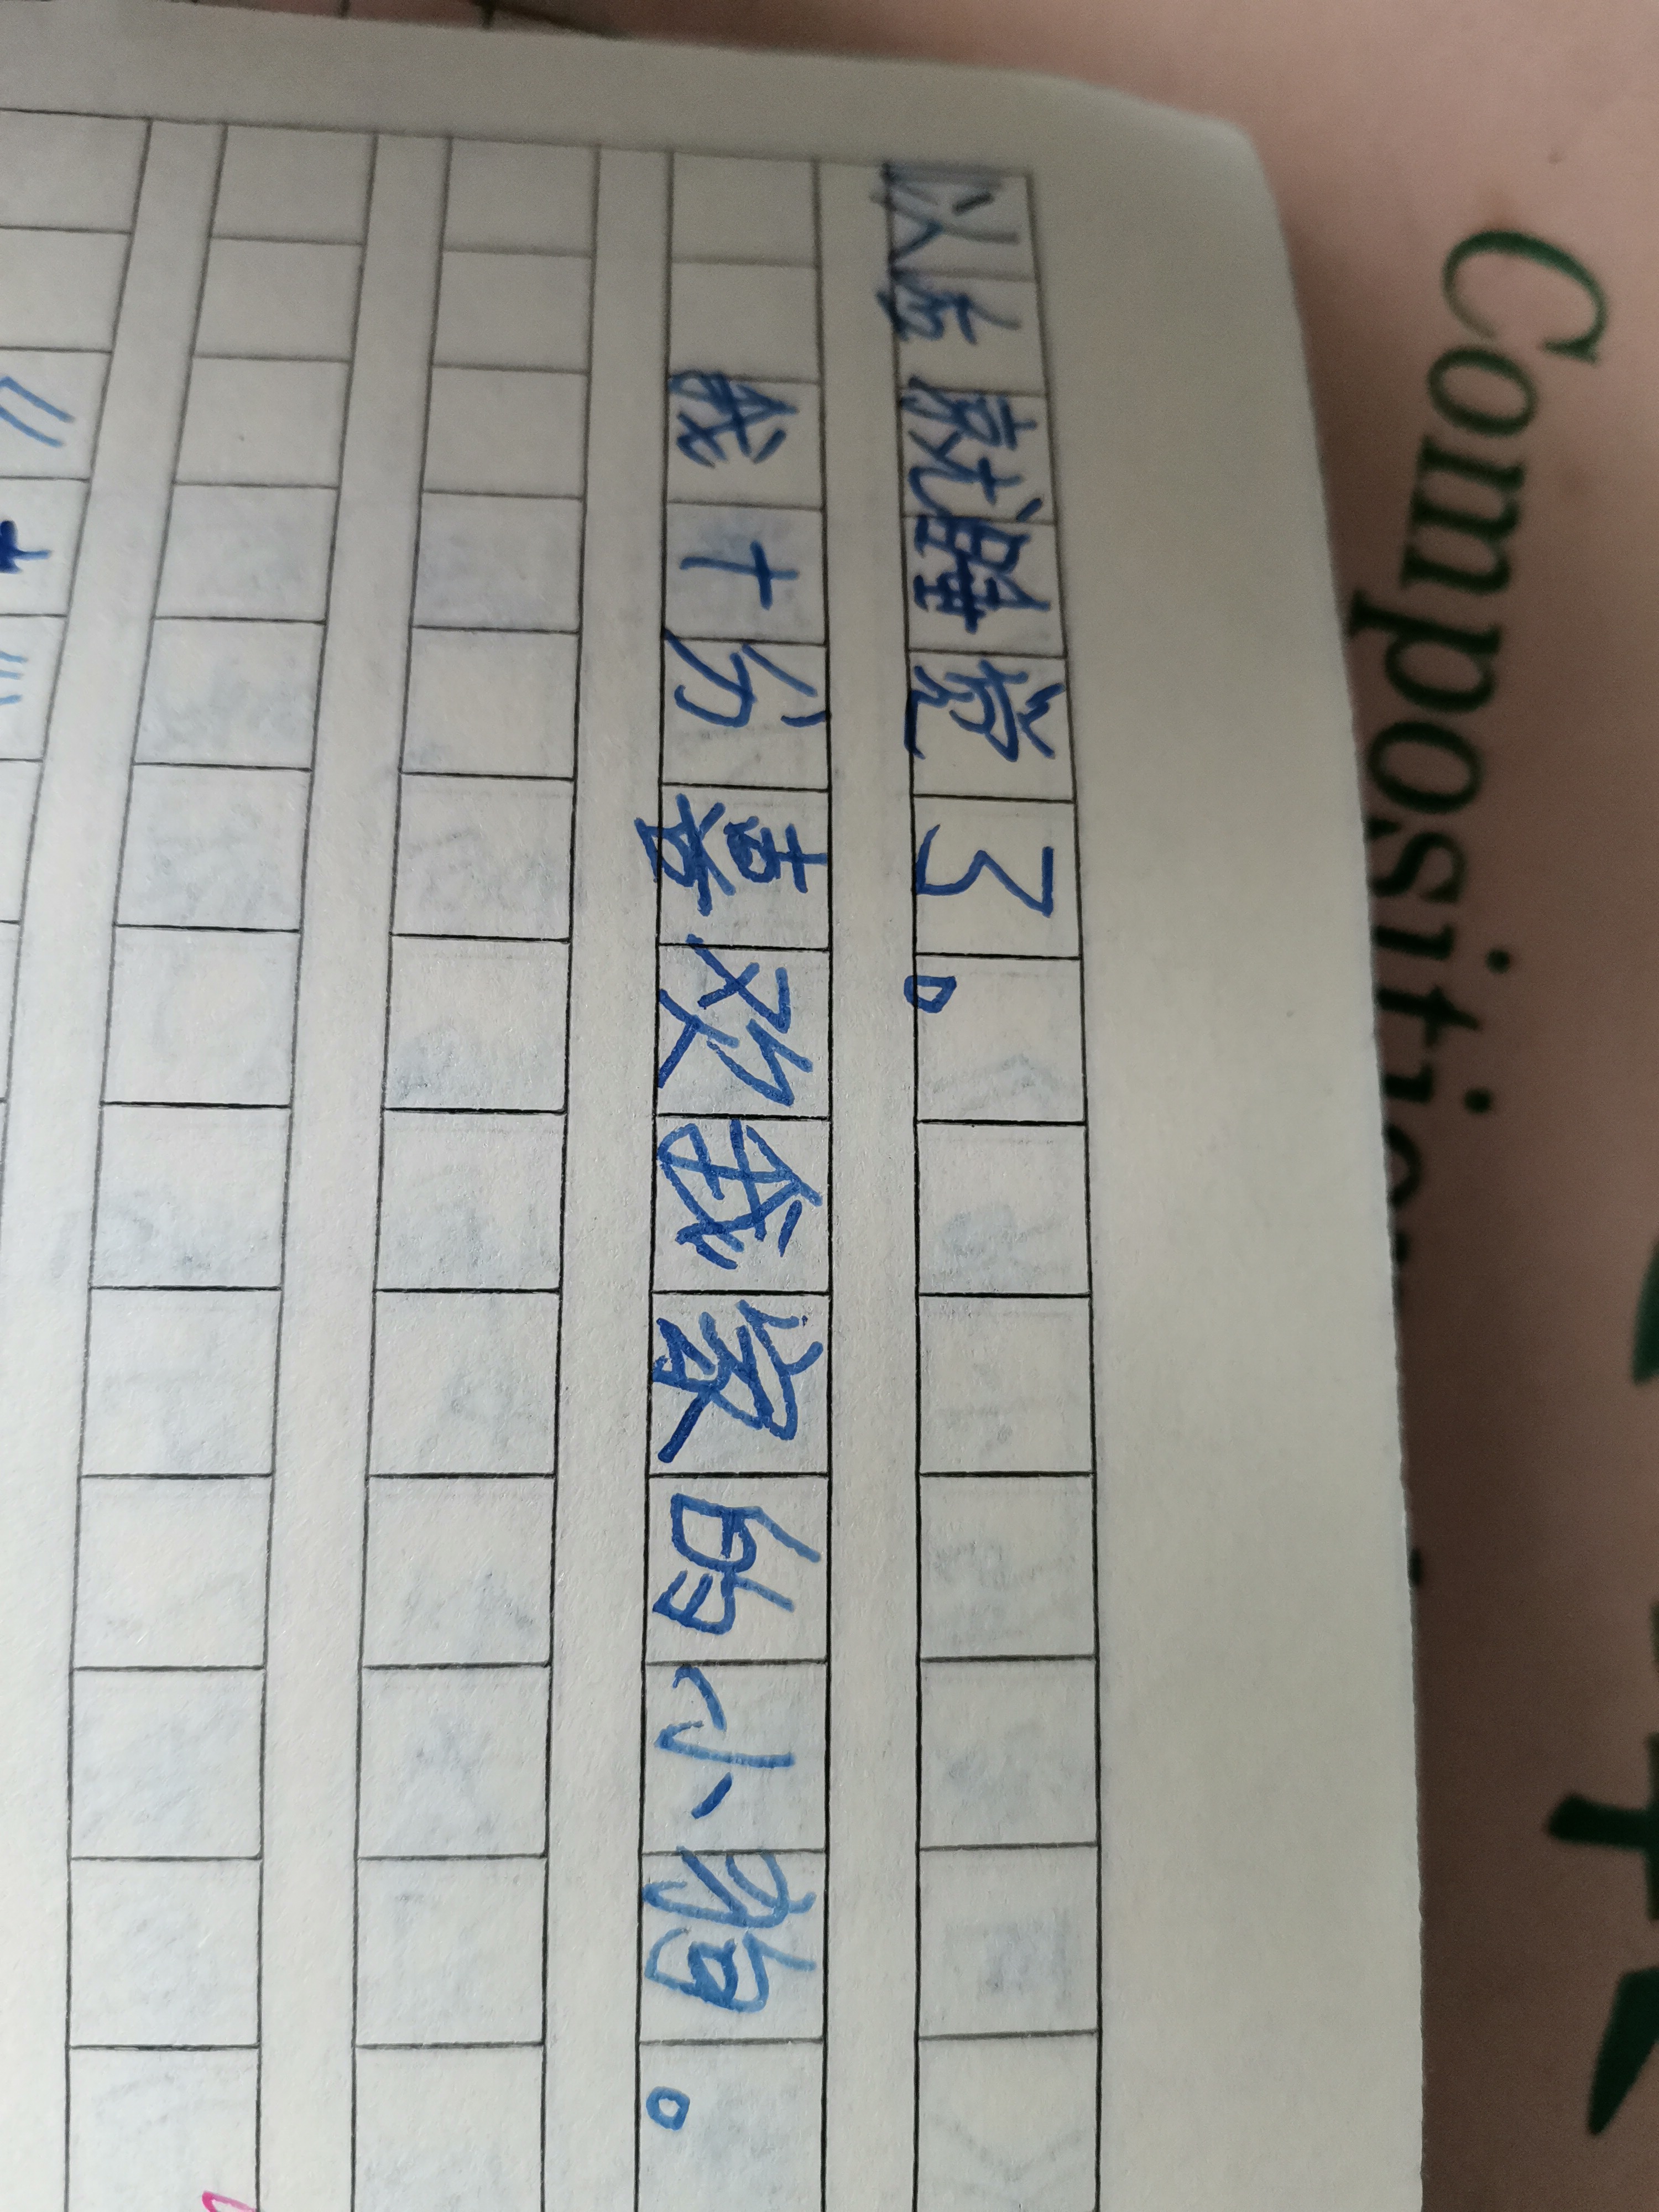 以后就睡觉了。
我十分喜欢我家的小狗。
Composition